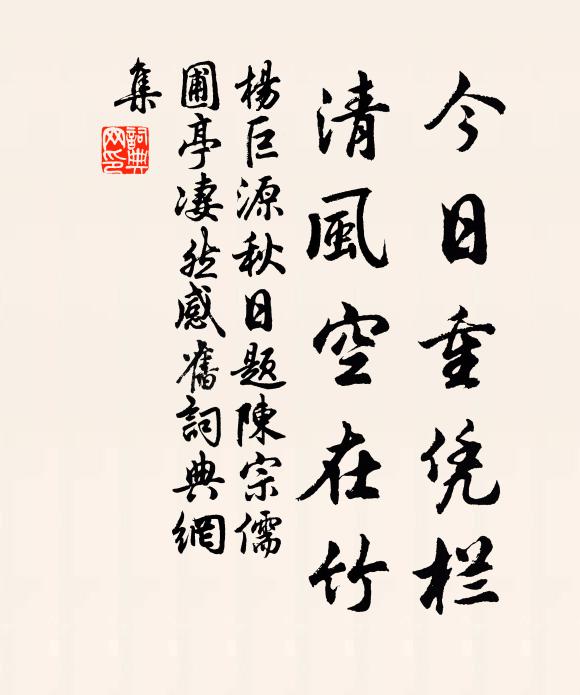 今日重凭栏
清風空在竹
楊巨源秋日題陳宗儒
圃亭凄然感舊詞典網
集
詞典网印